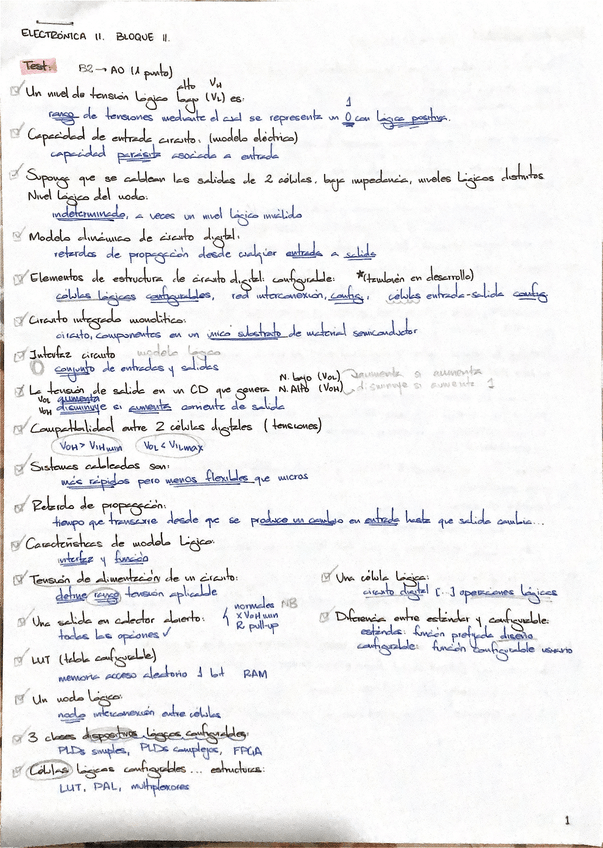 ELECTRÓNICA II. BLOQUE II.
Test: B2 → AO (1 punto)
alto VH
Un nivel de tensión lógico bajo (VL) es:
1
rango de tensiones mediante el cual se representa un 0 con lógica positiva.
Capacidad de entrada circuito: (modelo eléctrico)
capacidad parásita asociada a entrada
Suponga que se cablean las salidas de 2 células, baja impedancia, niveles lógicos distintos
Nivel lógico del nodo:
indeterminado, a veces un nivel lógico inválido
Modelo dinámico de circuito digital:
retardos de propagación desde cualquier entrada a salida
Elementos de estructura de circuito digital: configurable: *(también en desarrollo)
células lógicas configurables, red interconexión, config, células entrada-salida config
Circuito integrado monolítico:
circuito, componentes en un único substrato de material semiconductor
Interfaz circuito modelo lógico
conjunto de entradas y salidas
La tensión de salida en un CD que genera N. bajo (VOL) aumenta si aumenta
N. Alto (VOH) disminuye si aumente 1
VOL aumenta
VOH disminuye si aumenta corriente de salida
Compatibilidad entre 2 células digitales (tensiones)
VOH > VIHmin VOL < VILmax
Sistemas cableados son:
más rápidos pero menos flexibles que micros
Retardo de propagación:
tiempo que transcurre desde que se produce un cambio en entrada hasta que salida cambia...
Características de modelo lógico:
interfaz y función
Tensión de alimentación de un circuito:
define rango tensión aplicable
Una salida en colector abierto: normales NB
x VOH min
R. pull-up
todas las opciones ✓
LUT (tabla configurable)
memoria acceso aleatorio 1 bit RAM
Un nodo lógico:
nodo interconexión entre células
3 clases dispositivos lógicos configurables:
PLDs simples, PLDs complejos, FPGA
Células lógicas configurables... estructuras:
LUT, PAL, multiplexores
Una célula lógica:
circuito digital [...] operaciones lógicas
Diferencia entre estándar y configurable:
estándar: función prefijada diseño
configurable: función configurable usuario
1